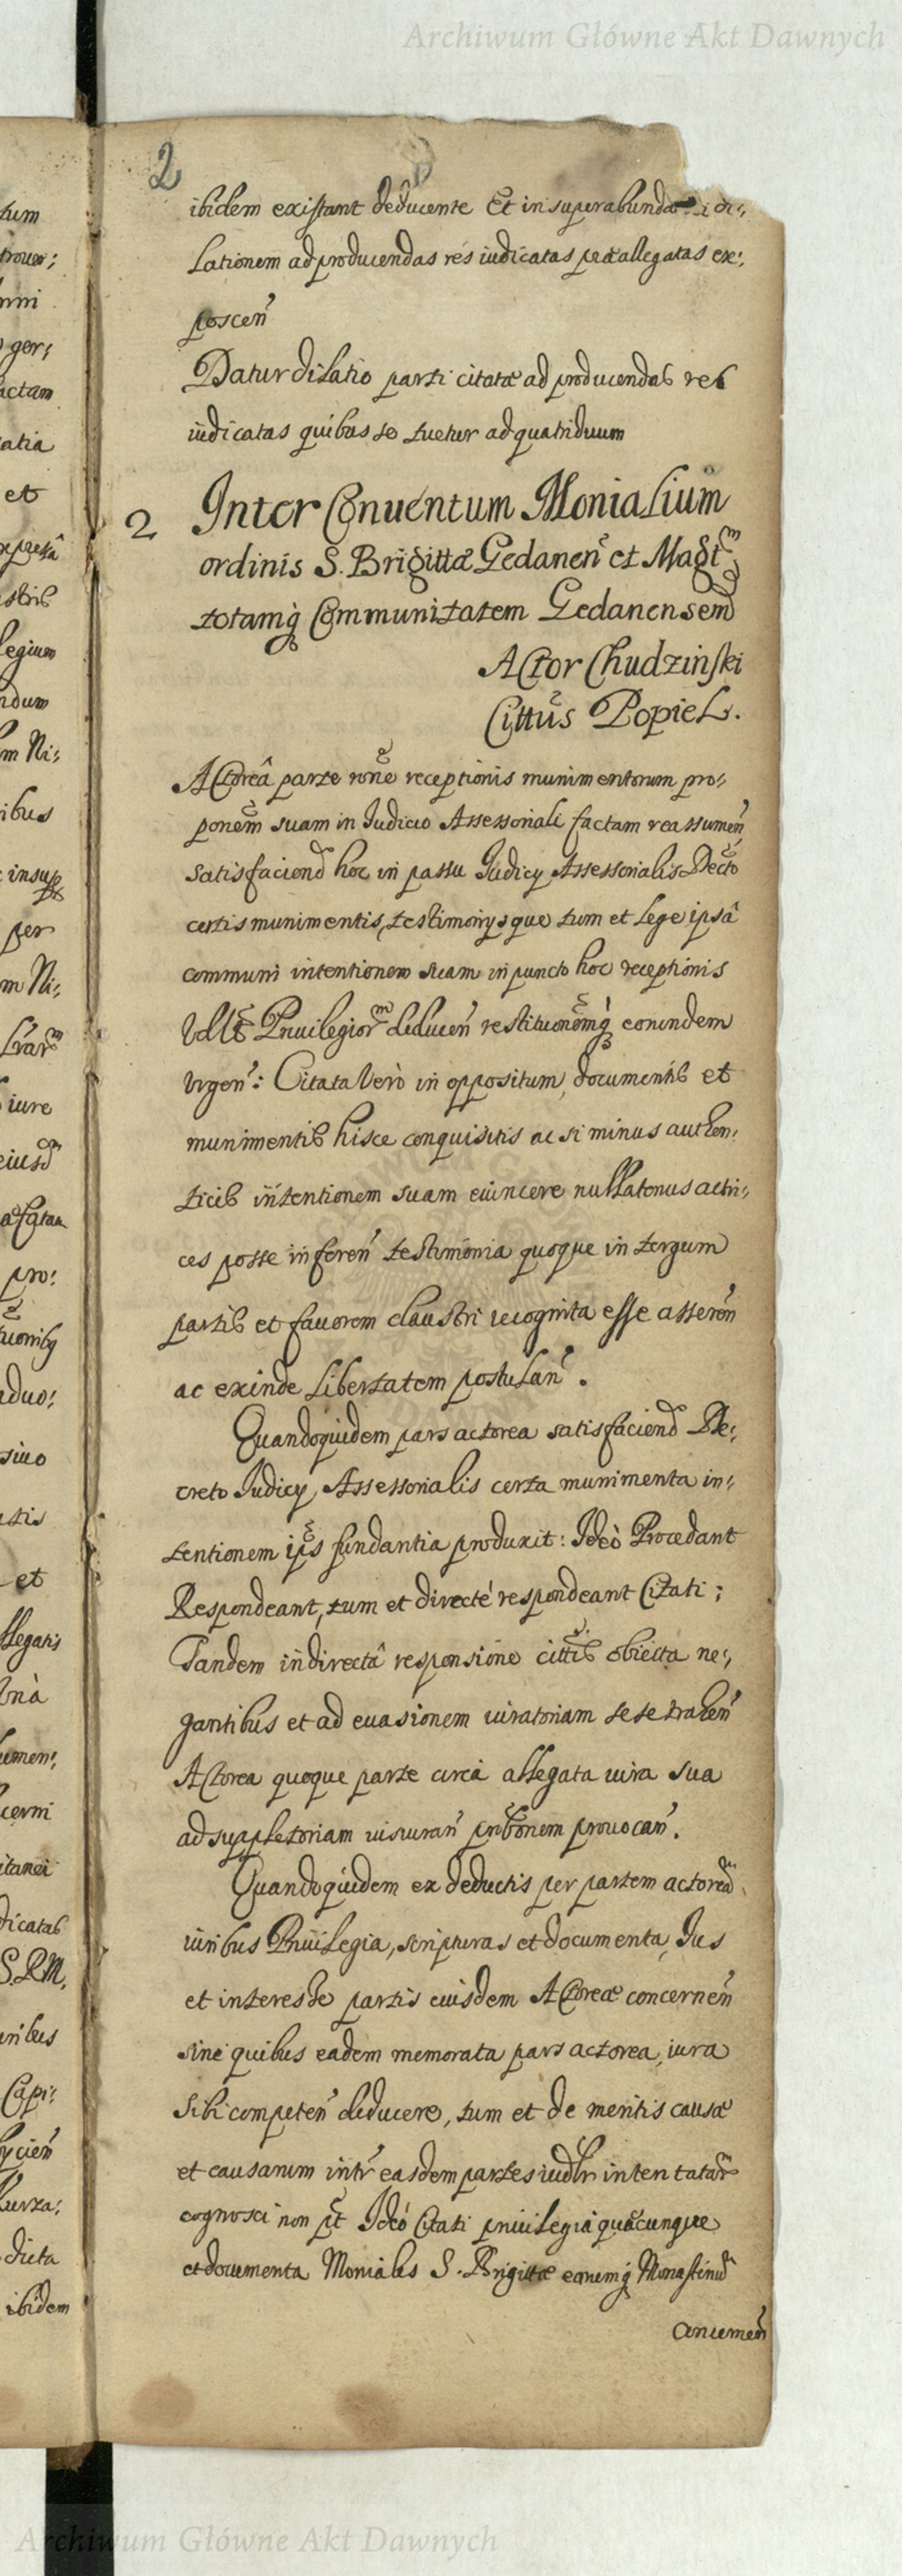 Archiwum Główne Akt Dawnych
2
ibidem existant deducente Et in superabundanti di:,
lationem ad producendas res iudicatas præallegatas ex:,
poscen̄
Datur dilatio parti citatæ ad producendas res
iudicatas quibus se tuetur ad quatriduum
2 Inter Conuentum Monialium
ordinis S. Brigittæ Gedanen̄ et Magtm
totamq̃ Communitatem Gedanensem
Actor Chudzinski
Cittus Popiel.
Actoreâ parte rone receptionis munimentorum pro:,
ponem suam in Judicio Assessoriali factam reassumen̄
satisfaciend hoc in passu Judicÿ Assessorialis Decto
certis munimentis, testimonÿsque tum et lege ipsâ
communi intentionem suam in puncto hoc receptionis
Priuilegiorm deducen̄ restituonemq̃ eorundem
Vrgen̄: Citata Verò in oppositum, documentis et
munimentis hisce conquisitis ac si minus authen:,
ticis intentionem suam euincere nullatenus actri:,
ces posse inferen̄ testimonia quoque in tergum
partis et fauorem claustri recognita esse asseren̄
ac exinde libertatem postulan̄.
Quandoquidem pars actorea satisfaciend De:,
creto Judicÿ Assessorialis certa munimenta in:,
tentionem ips fundantia produxit: Ideò Procedant
Respondeant, tum et directé respondeant Citati;
Tandem indirectâ responsione cittis obiecta ne:,
gantibus et ad euasionem iuratoriam sese trahen̄
Actorea quoque parte circa allegata iura sua
ad suppletoriam iusiuran̄ pribonem prouocan̄.
Quandoquidem ex deductis per partem actoream
iuribus Priuilegia, scripturas et documenta, Jus
et interesse partis eiusdem Actoreæ concernen̄
sine quibus eadem memorata pars actorea, iura
sibi competen̄ deducere, tum et de meritis causæ
et causarum intr̄ easdem partes iudlr intentatar̄
cognosci non pt̃ Ideó Citati priuilegia quæcunque
et documenta Moniales S. Brigittæ earumq̃ Monasterium
Archiwum Główne Akt Dawnych